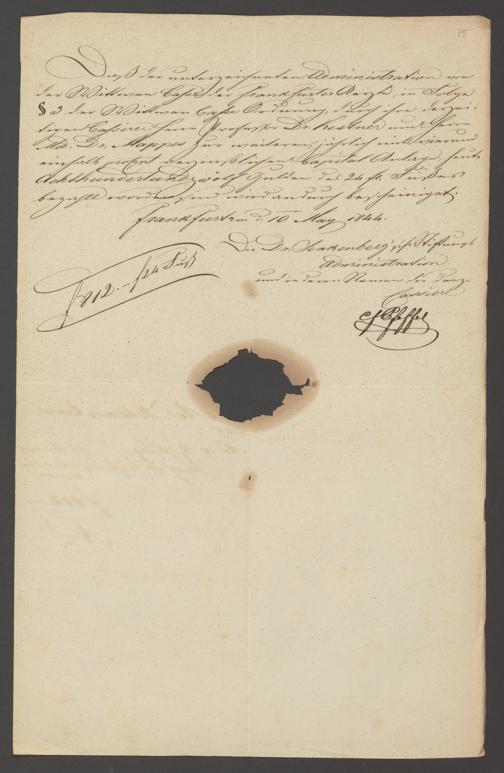 25
Daß der unterzeichneten Administration von
der Wittwen Casse der Frankfurter Aerzte, in Folge
§ 3 der Wittwen Casse Ordnung, durch ihre derzei-
tigen Cassiere Herrn Professor Dr. Kestner und Herrn
Dr. Mappes zur weiteren, jährlich mit vier und
einhalb procent verzinslichen Capital Anlage, heute
Achthundert und zwölf Gulden des 24 fl. Fußes
bezahlt worden sind wird andurch bescheiniget.
Frankfurt am 10 May 1844.
Die Dr. Senkenberg'sche Stiftungs
Administration
und in deren Namen der derz.
Cassier
f 812.– f 24 Fuß